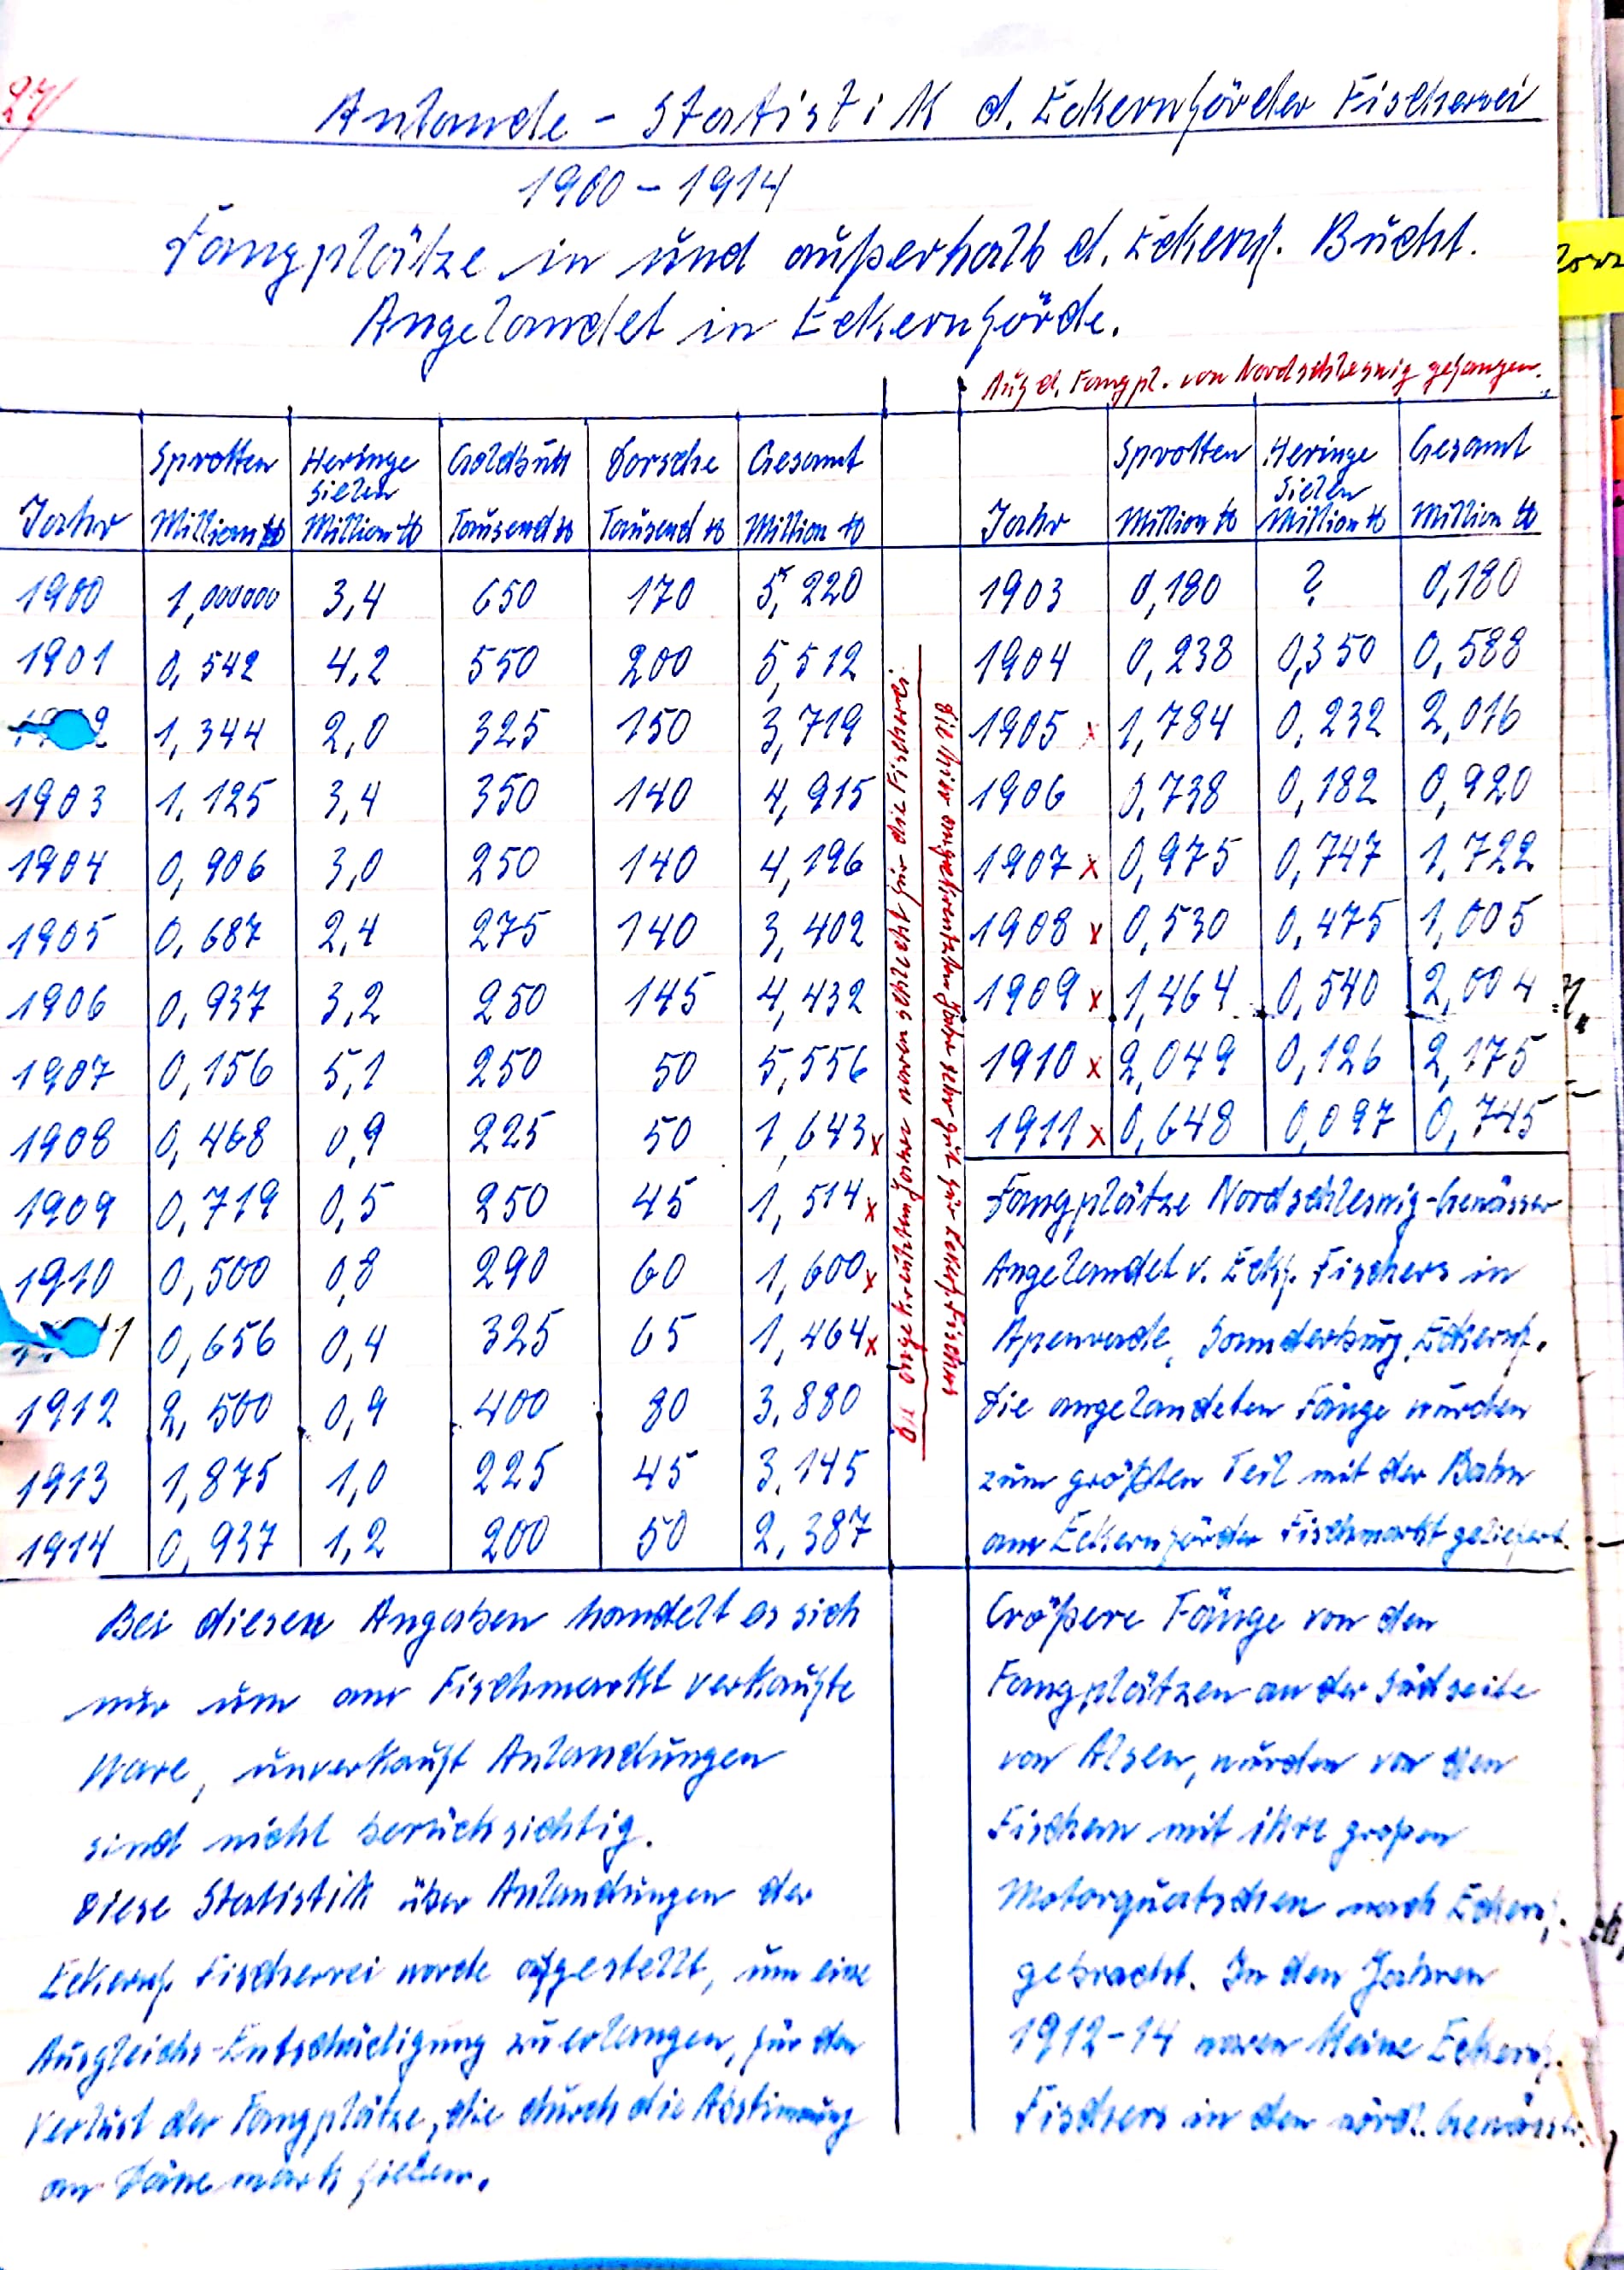 27
Anlande - Statistik d. Eckernförder Fischerei
1900 - 1914
Fangplätze in und außerhalb d. Eckernf. Bucht.
Angelandet in Eckernförde.
Auf d. Fangpl. von Nordschleswig gefangen.
Jahr Sprotten Million ℔ Heringe Sielen Million ℔ Goldbutt Tausend ℔ Dorsche Tausend ℔ Gesamt Million ℔
1900 1,000000 3,4 650 170 5,220
1901 0,542 4,2 550 200 5,512
2 1,344 2,0 325 150 3,719
1903 1,125 3,4 350 140 4,915
1904 0,906 3,0 250 140 4,196
1905 0,687 2,4 275 140 3,402
1906 0,937 3,2 250 145 4,432
1907 0,156 5,1 250 50 5,556
1908 0,468 0,9 225 50 1,643 x
1909 0,719 0,5 250 45 1,514 x
1910 0,500 0,8 290 60 1,600 x
1 0,656 0,4 325 65 1,464 x
1912 2,500 0,9 400 80 3.880
1913 1,875 1,0 225 45 3.145
1914 0,937 1,2 200 50 2.387
Die angekreutzten Jahre waren schlecht für die Fischerei
Die hier angekreutzten Jahre sehr gut für Eckf. Fischer
Jahr Sprotten Million ℔ Heringe Sielen Million ℔ Gesamt Million ℔
1903 0,180 ? 0,180
1904 0,238 0,350 0,588
1905 x 1,784 0,232 2,016
1906 0,738 0,182 0,920
1907 x 0,975 0,747 1,722
1908 x 0,530 0,475 1,005
1909 x 1,464 0,540 2,004
1910 x 2,049 0,126 2,175
1911 x 0,648 0,097 0,745
Fangplätze Nordschleswig-Gewässer
Angelandet v. Eckf. Fischers in
Apenrade, Sonnderburg, Eckernf.
Die angelandeten Fänge wurden
zum größten Teil mit der Bahn
am Eckernförder Fischmarkt geliefert.
Bei diesen Angaben handelt es sich
nur um am Fischmarkt verkaufte
Ware, unverkauft Anlandungen
sind nicht berücksichtig.
Diese Statistik über Anlandungen der
Eckernf. Fischerrei worde aufgestellt, um eine
Ausgleichs-Entschädigung zu erlangen, für den
Verlust der Fangplätze, die durch die Abstimmung
an Dänemark fielen.
Größere Fänge von den
Fangplätzen an der Südseite
von Alsen, wurden von den
Fischern mit ihre großen
Motorquatschen nach Eckernf.
gebracht. In den Jahren
1912-14 waren keine Eckernf.
Fischers in den nördl. Gewässer.